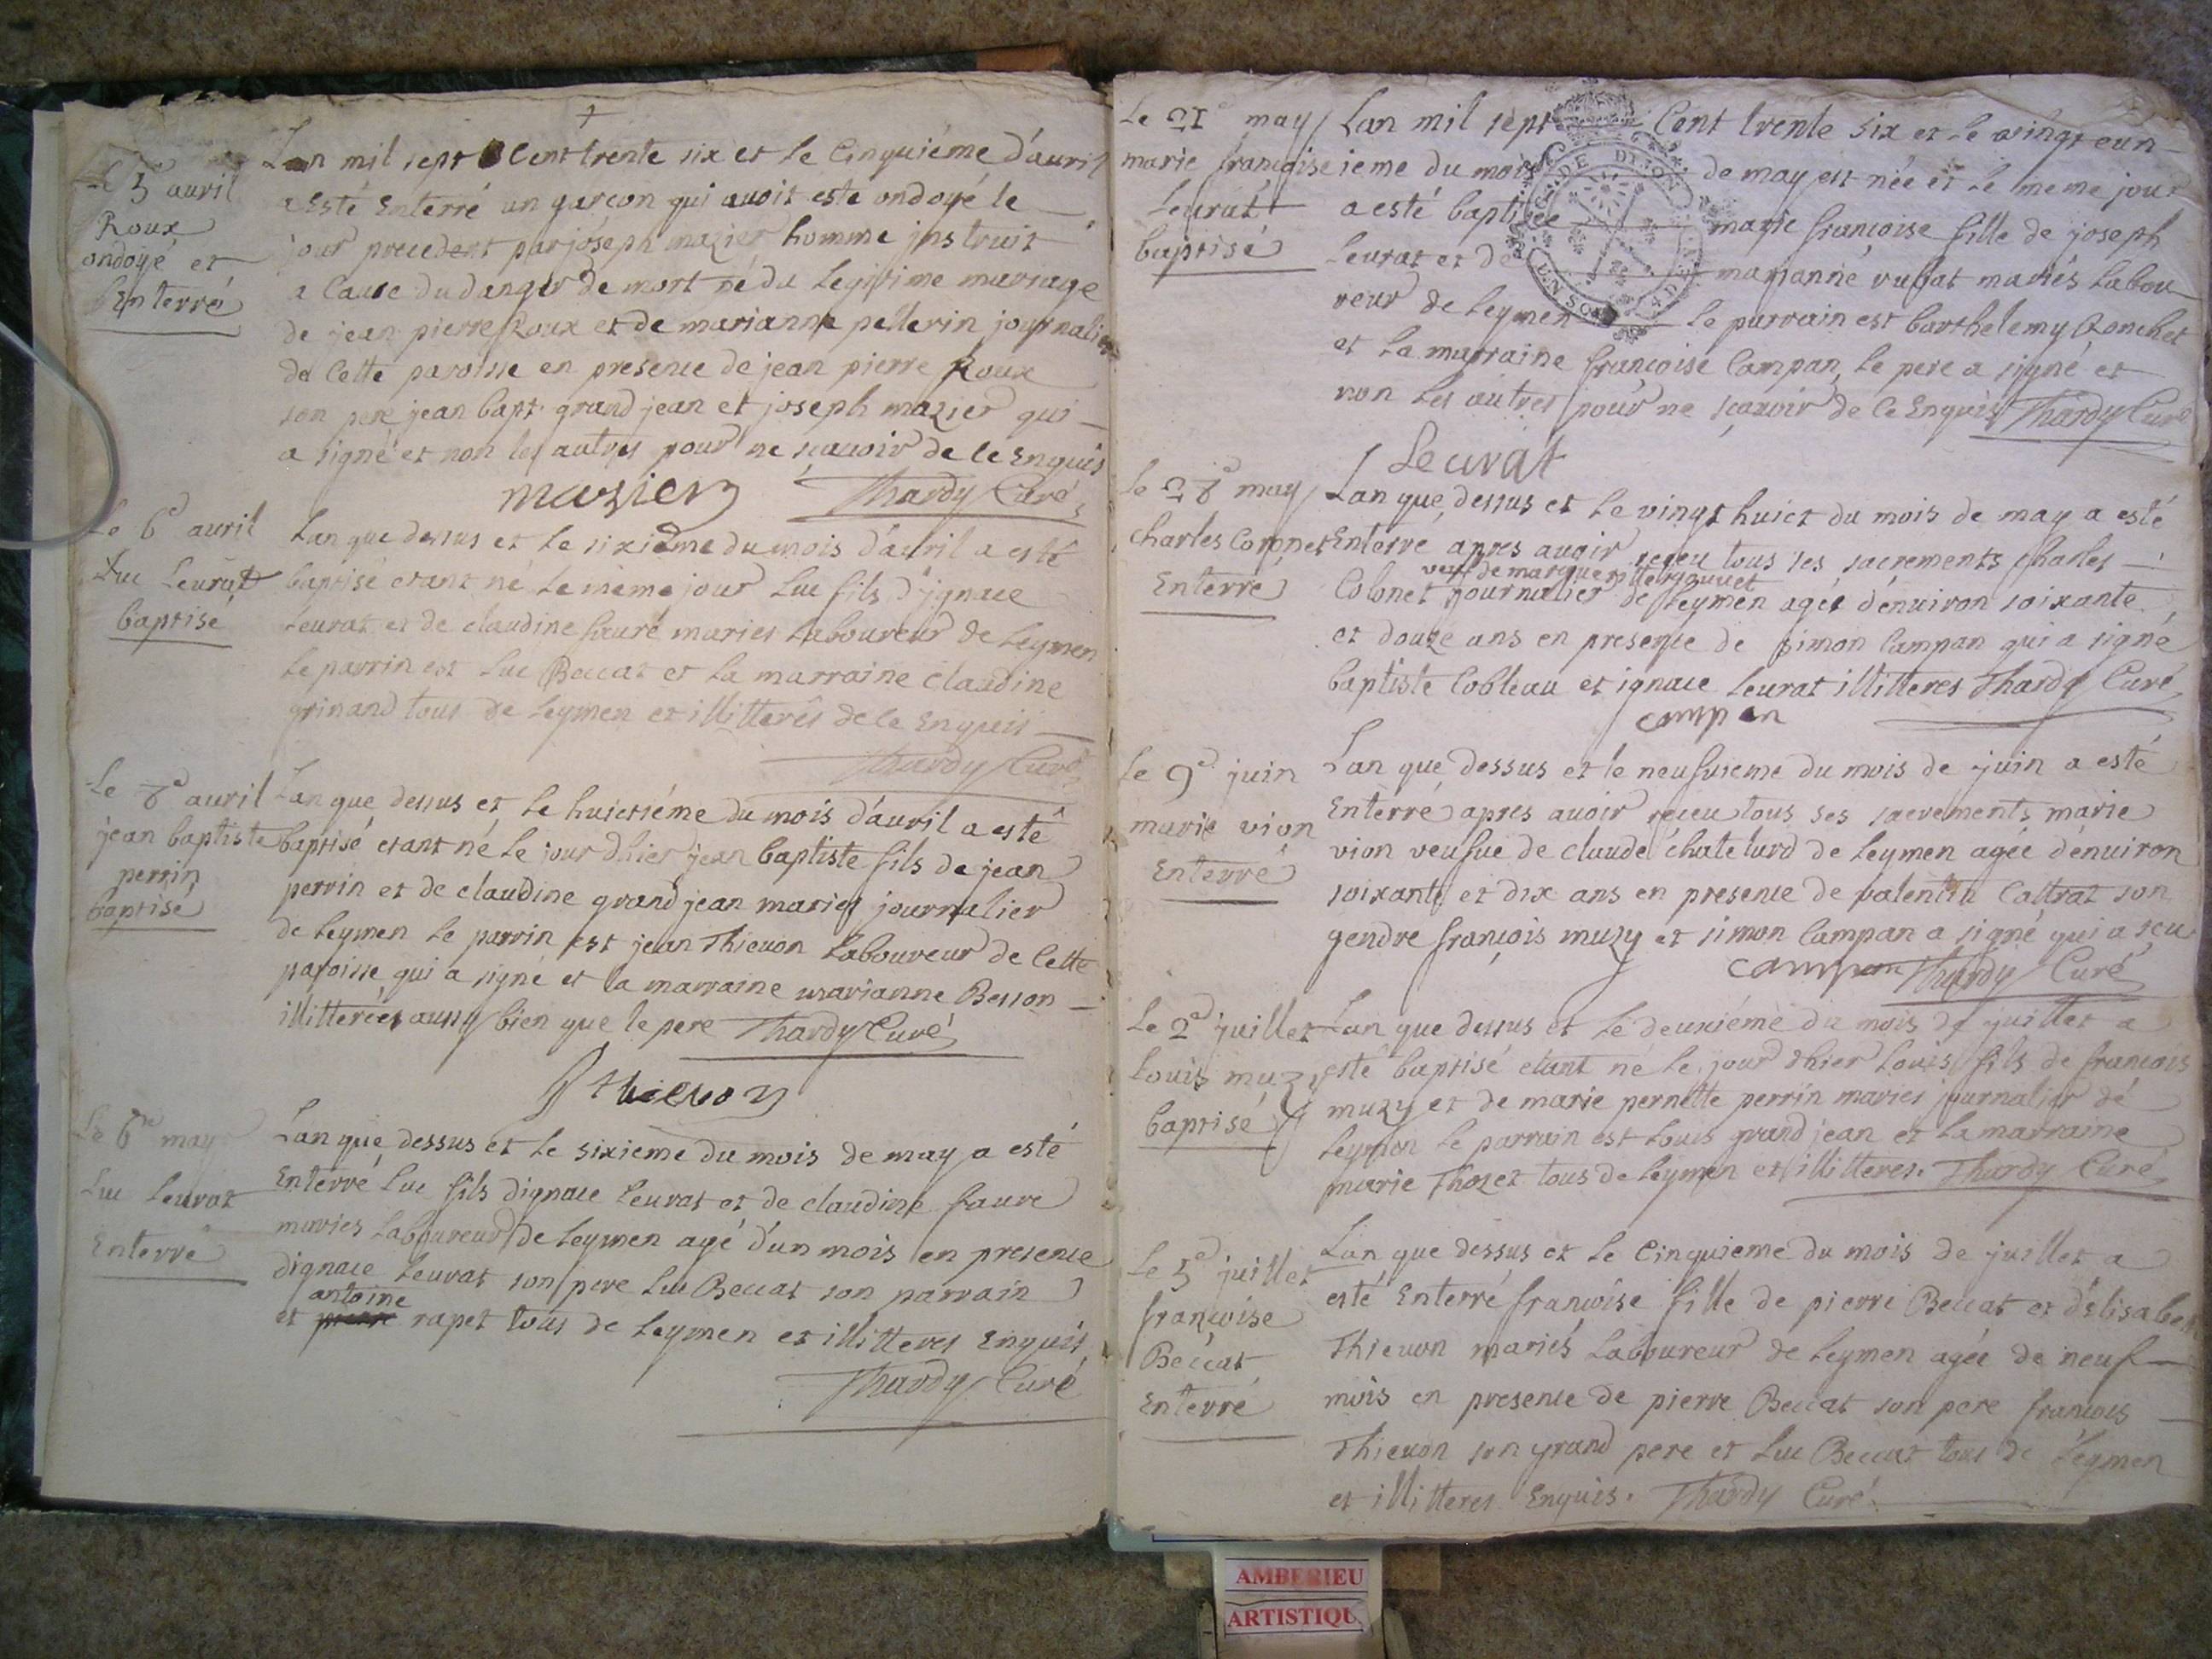 +
Le 5e avril
Roux
ondoyé et
Enterré
Lan mil sept Cent trente six et le Cinquiéme d'avril
a Esté Enterré un garçon qui avoit este ondoyé le
jour precedent par joseph mazier homme instruit
a Cause du danger de mort né du legitime mariage
de jean pierre Roux et de marianne pellerin journalier
de Cette paroisse en presence de jean pierre Roux
son pere jean bapt. grand jean et joseph mazier qui
a signé et non les autres pour ne sçavoir de ce Enquis
mazier Thardy Curé
Le 6e avril
Luc Leurat
baptisé
Lan que dessus et le sixiéme du mois d'avril a esté
baptisé etant né le même jour Luc fils d'ignace
Leurat et de claudine fauré maries Laboureur de Leymen
Le parrin est Luc Beccat et la marraine claudine
grinand tous de Leymen et illitterés de ce Enquis
Thardy Curé
Le 8e avril
jean baptiste
perrin
baptisé
Lan que dessus et le huictiéme du mois d'avril a esté
baptisé etant né le jour dhier jean baptiste fils de jean
perrin et de claudine grand jean maries journalier
de Leymen le parrin est jean Thievon Laboureur de Cette
paroisse, qui a signé et la marraine marianne Besson
illitterées aussy bien que le pere Thardy Curé
thievon
Le 6e may
Luc Leurat
Enterré
Lan que dessus et le sixieme du mois de may a esté
Enterré Luc fils dignace Leurat et de claudine faure
maries Laboureur de Leymen agé d'un mois en presence
dignace Leurat son pere Luc Beccat son parrain
antoine
et pierre rapet tous de Leymen et illitteres Enquis
Thardy Curé
Le 21e may
marie françoise
Leurat
baptisé
Lan mil sept Cent trente six et le vingt eun
ieme du mois de may est née et le meme jour
a esté baptisée marie françoise fille de joseph
Leurat et de marianne rubat mariés Labou
reur de Leymen le parrain est barthelemy Ronchet
et la marraine françoise Campan, le pere a signé et
non les autres pour ne sçavoir de ce Enquis Thardy Curé
Leurat
DE DIJON
Le 28e may
charles Coronet
Enterré
Lan que dessus et le vingt huict du mois de may a esté
Enterré apres avoir receu tous ses sacrements charles
veuf de margueritte
Colonet journalier de Leymen agée d'environ soixante
et douze ans en presence de simon Campan qui a signé
baptiste Cobleau et ignace Leurat illitteres Thardy Curé
campan
Le 9e juin
marie vion
Enterré
Lan que dessus et le neufvieme du mois de juin a esté
Enterré apres avoir receu tous ses sacrements marie
vion veufue de claude chatelard de Leymen agée d'environ
soixante et dix ans en presence de valentin Cattrat son
gendre françois muzy et simon Campan a signé qui a sçu
campan Thardy Curé
Le 2e juillet
Louis muzy
baptisé
Lan que dessus et le deuxiéme du mois de juillet a
esté baptisé etant né le jour dhier Louis fils de francois
muzy et de marie pernette perrin maries journalier de
Leymen le parrain est Louis grand jean et la marraine
marie Thozet tous de Leymen et illitteres. Thardy Curé
Le 5e juillet
françoise
Beccat
Enterré
Lan que dessus et le Cinquieme du mois de juillet a
esté Enterré françoise fille de pierre Beccat et d'Elisabeth
Thievon mariés Laboureur de Leymen agée de neuf
mois en presence de pierre Beccat son pere francois
Thievon son grand pere et Luc Beccat tous de Leymen
et illitteres Enquis. Thardy Curé
AMBERIEU
ARTISTIQU